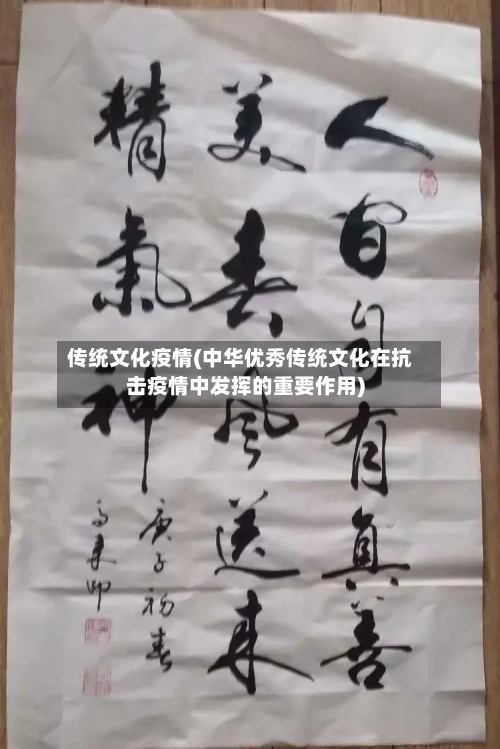 人间自有真善
美春风送来
精氣神
庚子初春
传统文化疫情(中华优秀传统文化在抗
击疫情中发挥的重要作用)